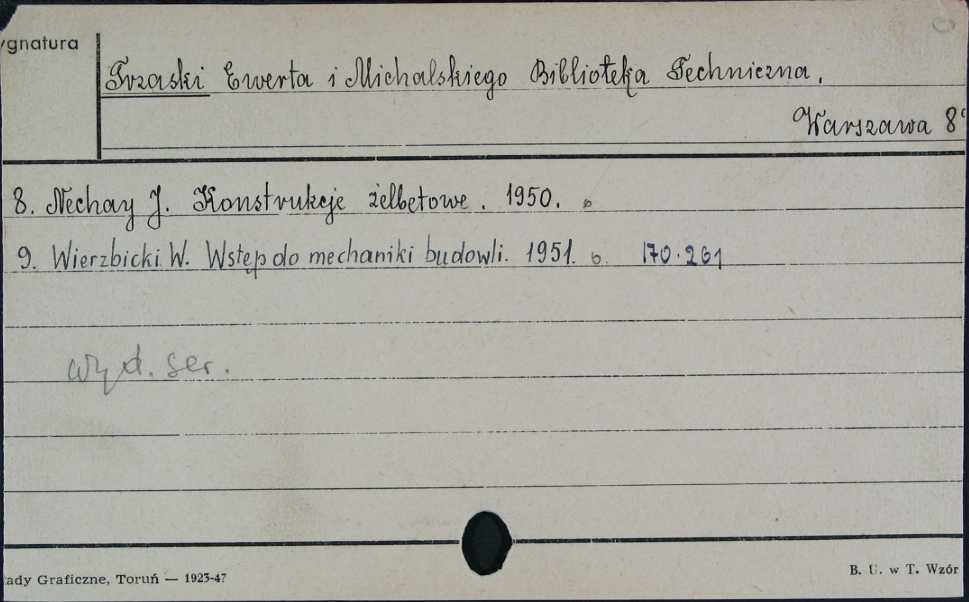 ygnatura
Trzaski Ewerta i Michalskiego Biblioteka Techniczna.
Warszawa 8°
8. Nechay J. Konstrukcje żelbetowe. 1950. b
9. Wierzbicki W. Wstęp do mechaniki budowli. 1951. b. 170.261
wyd. ser.
ady Graficzne, Toruń — 1923-47
B. U. w T. Wzór